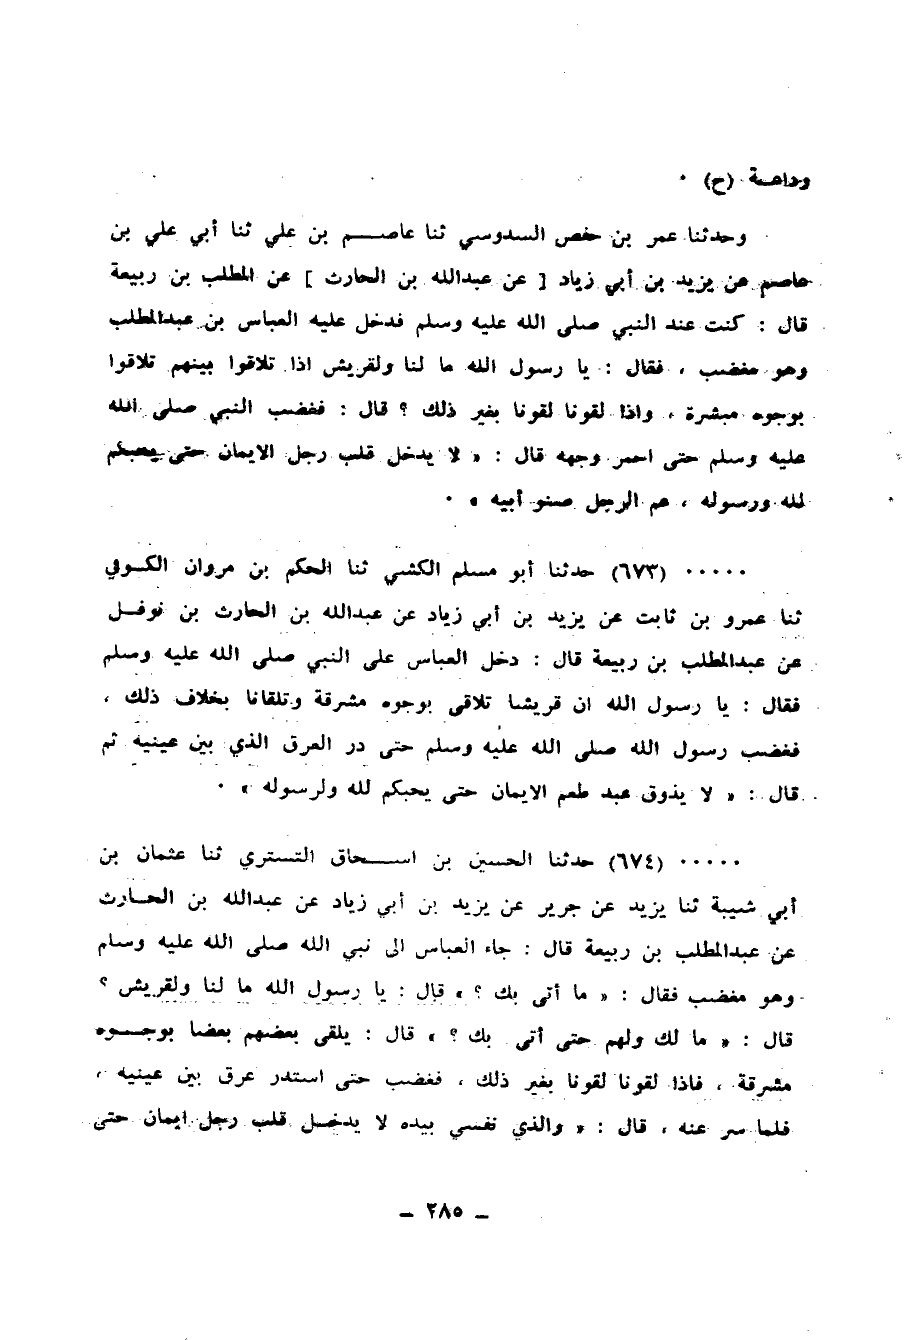 وداعــة (ح) ٠
وحدثنا عمر بن حفص السدوسي ثنا عاصــــم بن علي ثنا أبي علي بن
عاصم عن يزيد بن أبي زياد [ عن عبدالله بن الحارث ] عن المطلب بن ربيعة
قال : كنت عند النبي صلى الله عليه وسلم فدخل عليه العباس بن عبدالمطلب
وهو مغضب ، فقال : يا رسول الله ما لنا ولقريش اذا تلاقوا بينهم تلاقوا
بوجوه مبشرة ، واذا لقونا لقونا بغير ذلك ؟ قال : فغضب النبي صلى الله
عليه وسلم حتى احمر وجهه قال : « لا يدخل قلب رجل الايمان حتى يحبكم
لله ورسوله ، عم الرجل صنو أبيه » ٠
٠٠٠٠٠ (٦٧٣) حدثنا أبو مسلم الكشي ثنا الحكم بن مروان الكــوفي
ثنا عمرو بن ثابت عن يزيد بن أبي زياد عن عبدالله بن الحارث بن نوفــل
عن عبدالمطلب بن ربيعة قال : دخل العباس على النبي صلى الله عليه وسلم
فقال : يا رسول الله ان قريشا تلاقى بوجوه مشرقة وتلقانا بخلاف ذلك ،
فغضب رسول الله صلى الله عليه وسلم حتى در العرق الذي بين عينيه ثم
قال : « لا يذوق عبد طعم الايمان حتى يحبكم لله ولرسوله » ٠
٠٠٠٠٠ (٦٧٤) حدثنا الحسين بن اســــحاق التستري ثنا عثمان بن
أبي شيبة ثنا يزيد عن جرير عن يزيد بن أبي زياد عن عبدالله بن الحــارث
عن عبدالمطلب بن ربيعة قال : جاء العباس الى نبي الله صلى الله عليه وسلم
وهو مغضب فقال : « ما أتى بك ؟ » قال : يا رسول الله ما لنا ولقريش ؟
قال : « ما لك ولهم حتى أتى بك ؟ » قال : يلقى بعضهم بعضا بوجــوه
مشرقة ، فاذا لقونا لقونا بغير ذلك ، فغضب حتى استدر عرق بين عينيه ،
فلما سر عنه ، قال : « والذي نفسي بيده لا يدخــل قلب رجل ايمان حتى
ـ ٢٨٥ ـ